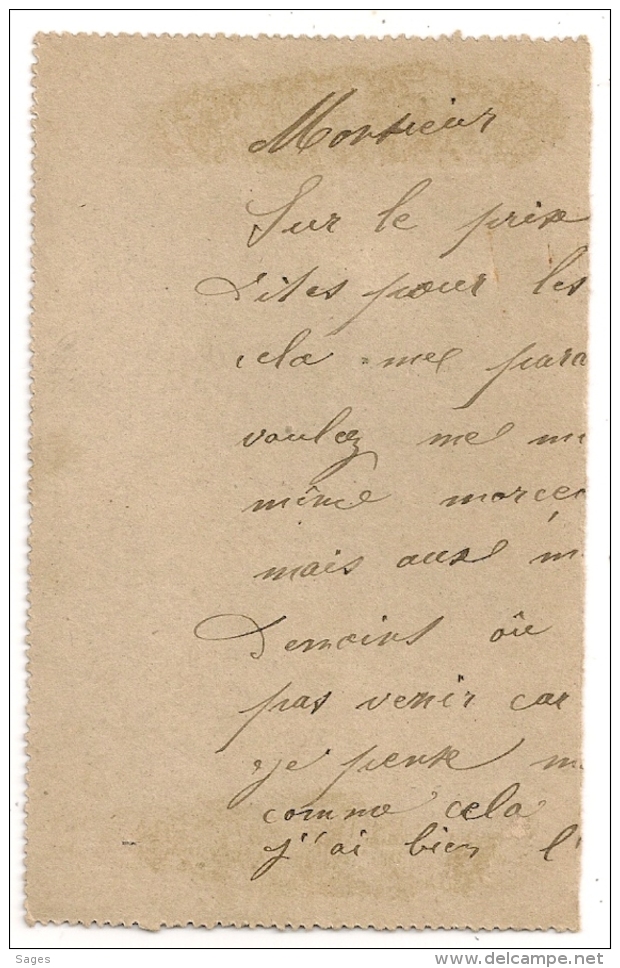 Monsieur
Sur le prix
d'ites pour les
cela me para
voulez me
même morce
mais aux m
Demoins où
pas venir car
je pense m
comme cela
j'ai bien l'
Sages
delcampe.net